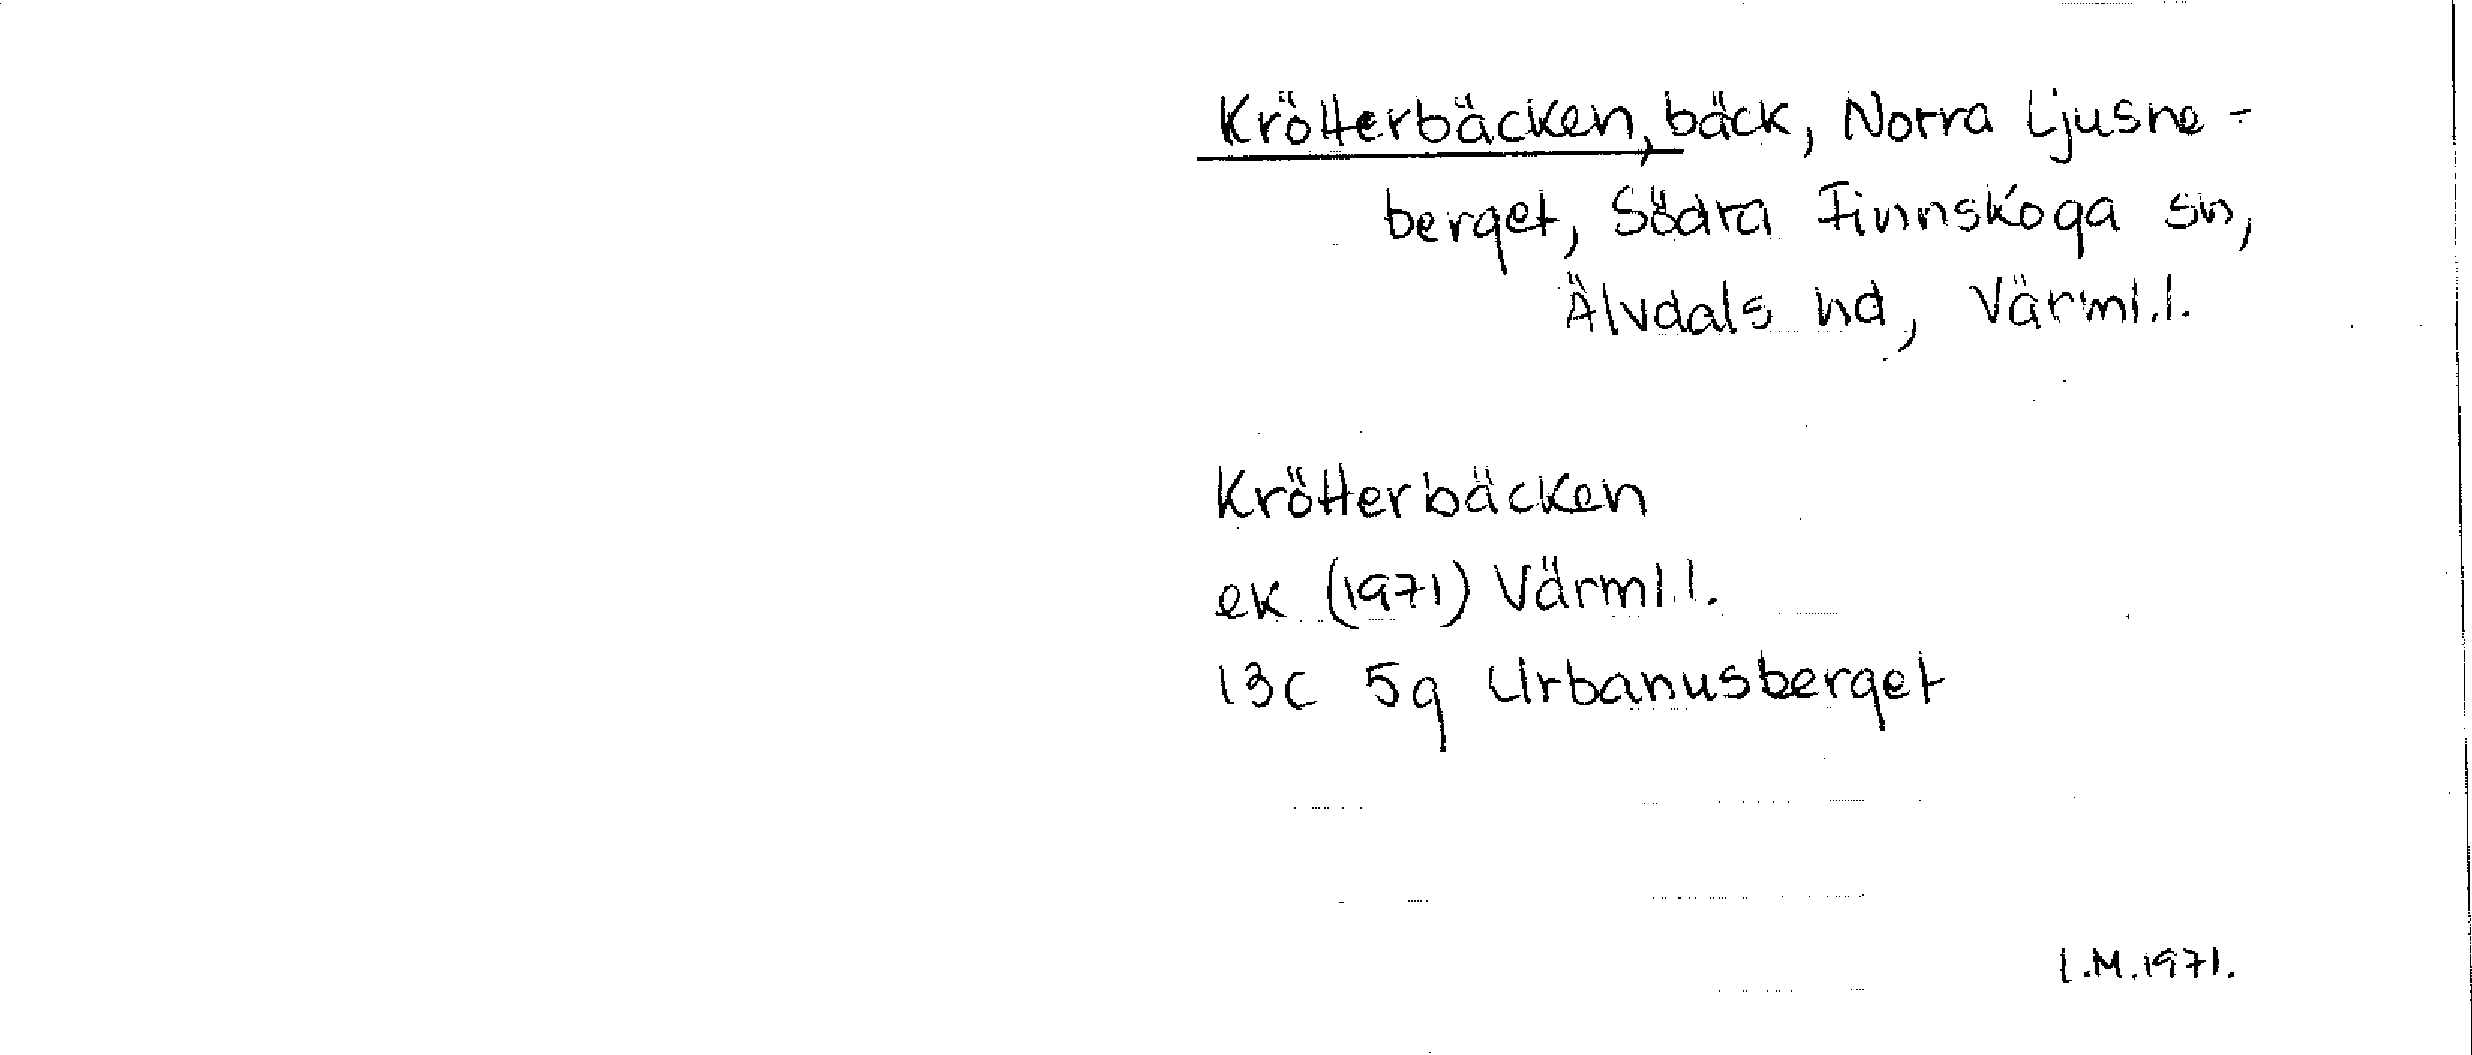 Krötterbäcken, bäck, Norra Ljusne-
berget, Södra Finnskoga sn,
Älvdals hd, Värml.l.
Krötterbäcken
ek (1971) Värml.l.
13C 5g Urbanusberget
I.M.1971.